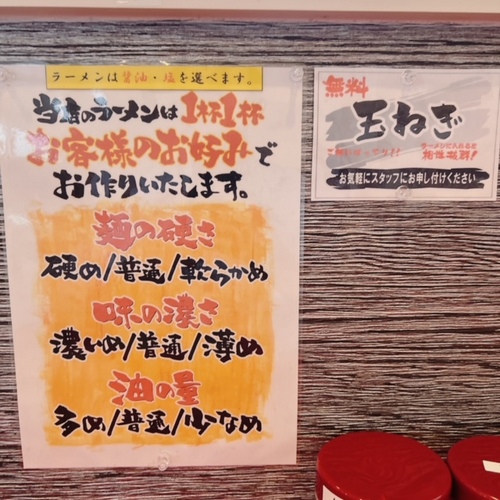 ラーメンは醤油・塩を選べます。
当店のラーメンは1杯1杯
お客様のお好みで
お作りいたします。
麺の硬さ
硬め/普通/軟らかめ
味の濃さ
濃いめ/普通/薄め
油の量
多め/普通/少なめ
無料
玉ねぎ
ラーメンに入れると
相性抜群!
お気軽にスタッフにお申し付けください